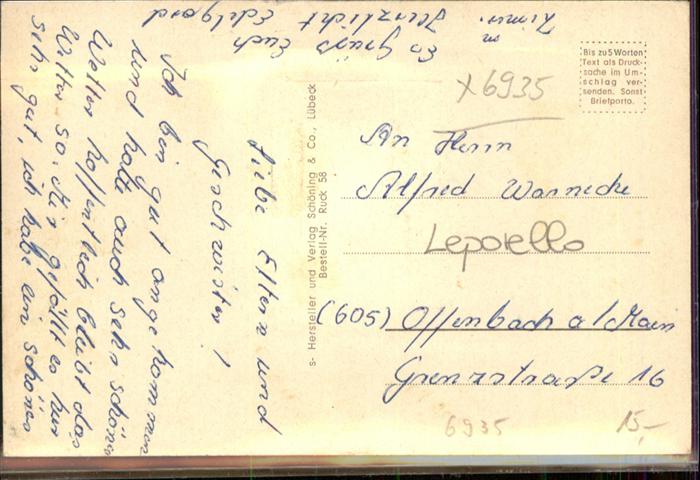 Liebe Eltern und
Geschwister!
Ich bin gut angekommen
und hatte auch sehr schönes
Wetter hoffentlich bleibt das
Wetter so. Mir gefällt es hier
sehr gut, ich habe ein schönes
Zimmer.
Es grüßt Euch
Herzlichst Edelgard
s- Hersteller und Verlag Schöning & Co., Lübeck
Bestell-Nr. Ruck 58
Bis zu 5 Worten
Text als Druck-
sache im Um-
schlag ver-
senden. Sonst
Briefporto.
x 6935
An Herrn
Alfred Warnecke
Leporello
(605) Offenbach a/Main
Grenzstraße 16
6935
15,-